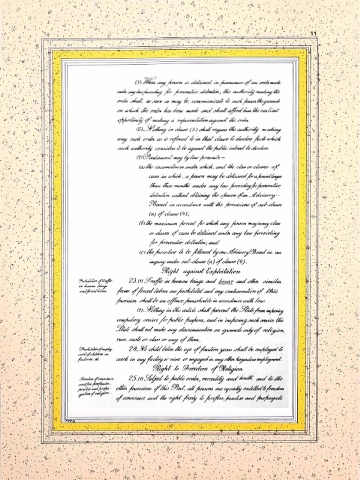 11
(5) When any person is detained in pursuance of an order made
under any law providing for preventive detention, the authority making the
order shall, as soon as may be, communicate to such person the grounds
on which the order has been made and shall afford him the earliest
opportunity of making a representation against the order.
(6) Nothing in clause (5) shall require the authority making
any such order as is referred to in that clause to disclose facts which
such authority considers to be against the public interest to disclose.
(7) Parliament may by law prescribe—
(a) the circumstances under which, and the class or classes of
cases in which, a person may be detained for a period longer
than three months under any law providing for preventive
detention without obtaining the opinion of an Advisory
Board in accordance with the provisions of sub-clause
(a) of clause (4);
(b) the maximum period for which any person may in any class
or classes of cases be detained under any law providing
for preventive detention; and
(c) the procedure to be followed by an Advisory Board in an
inquiry under sub-clause (a) of clause (4).
Right against Exploitation
Prohibition of traffic
in human beings
and forced labour.
23. (1) Traffic in human beings and begar and other similar
forms of forced labour are prohibited and any contravention of this
provision shall be an offence punishable in accordance with law.
(2) Nothing in this article shall prevent the State from imposing
compulsory service for public purposes, and in imposing such service the
State shall not make any discrimination on grounds only of religion,
race, caste or class or any of them.
Prohibition of employ-
ment of children in
factories, etc.
24. No child below the age of fourteen years shall be employed to
work in any factory or mine or engaged in any other hazardous employment.
Right to Freedom of Religion
Freedom of conscience
and free profession,
practice and propa-
gation of religion.
25. (1) Subject to public order, morality and health and to the
other provisions of this Part, all persons are equally entitled to freedom
of conscience and the right freely to profess, practise and propagate